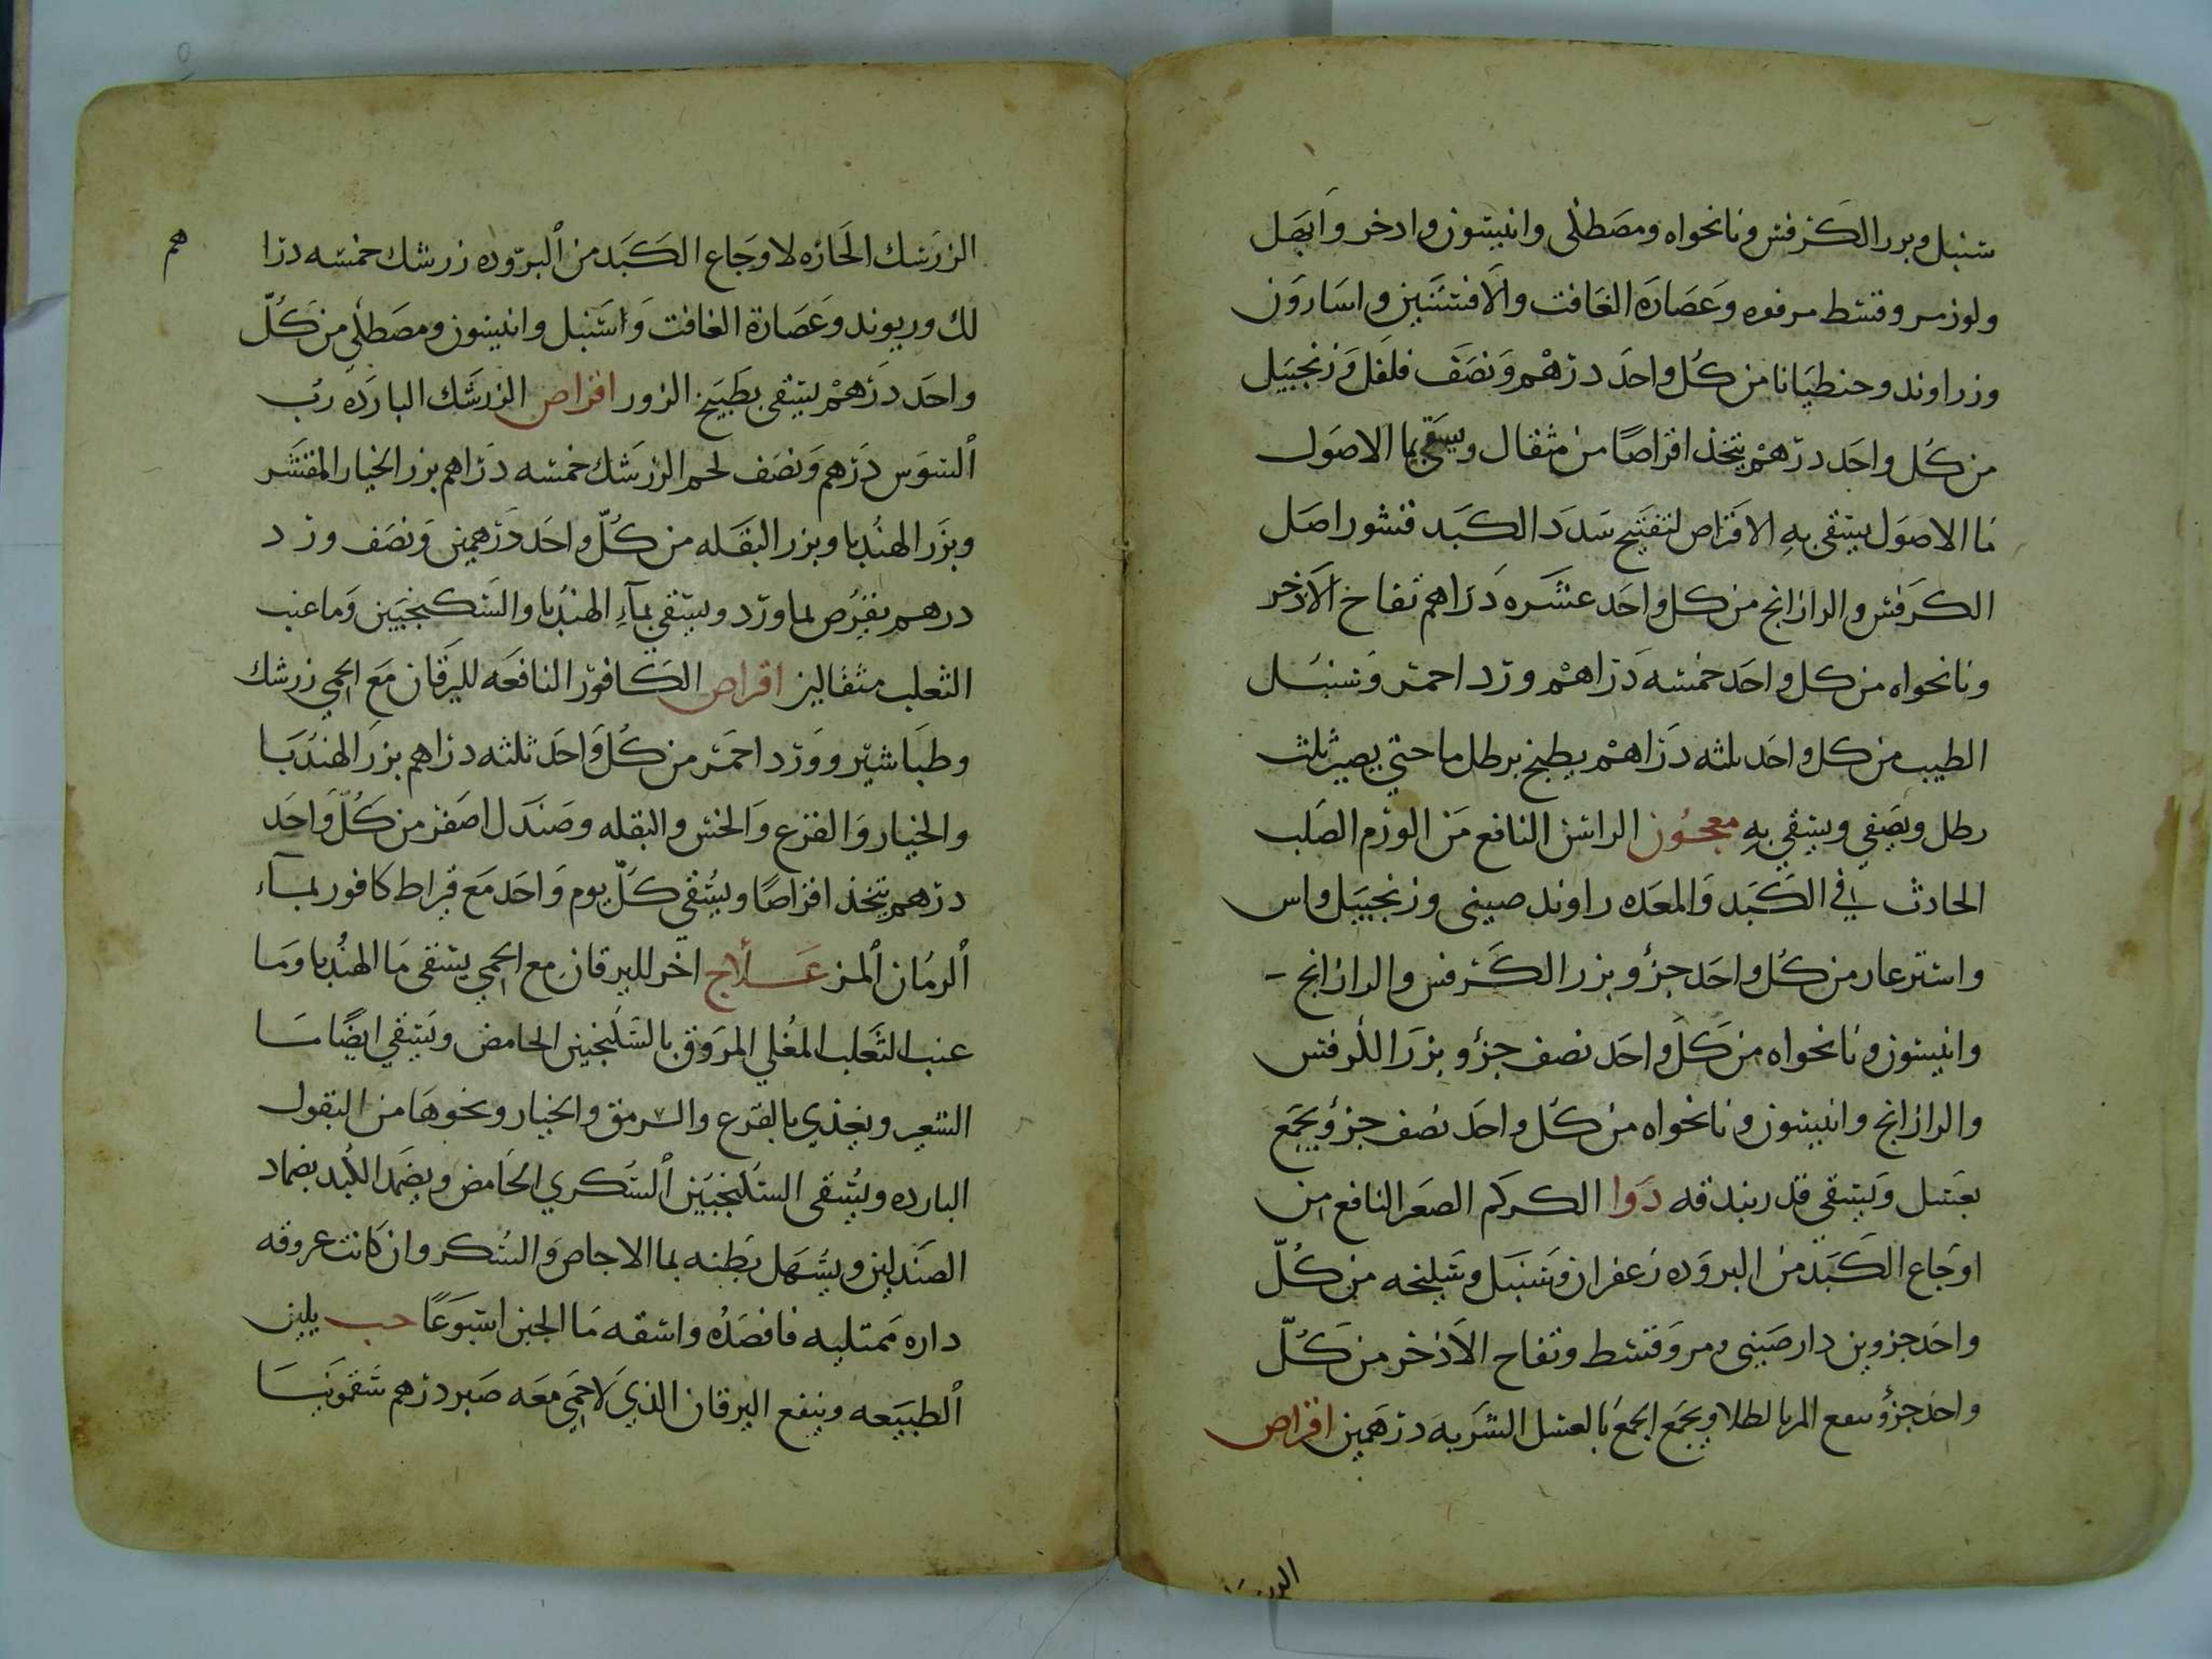 سنبل وبزر الكرفس ونانخواه ومصطكى وانيسون وادخر وابهل
ولوز مر وقسط مر فوه وعصارة الغافت والافسنتين واسارون
وزراوند وجنطيانا من كل واحد درهم ونصف فلفل وزنجبيل
من كل واحد درهم يتخذ اقراصا من مثقال ويسقى بما الاصول
ما الاصول يسقى به الاقراص لتفتيح سدد الكبد قشور اصل
الكرفس والرازيانج من كل واحد عشره دراهم فقاح الاذخر
ونانخواه من كل واحد خمسه دراهم ورد احمر وسنبل
الطيب من كل واحد ثلثه دراهم يطبخ برطل ما حتي يصير ثلث
رطل ويصفي ويسقي به معجون الراسن النافع من الورم الصلب
الحادث في الكبد والمعده راوند صيني وزنجبيل واس
واستر عار من كل واحد جزؤ وبزر الكرفس والرازيانج
وانيسون ونانخواه من كل واحد نصف جزؤ وبزر الكرفس
والرازيانج وانيسون ونانخواه من كل واحد نصف جزؤ ويجمع
بعسل ويسقي قدر بندقه دوا الكركم الصغر النافع من
اوجاع الكبد من البروده زعفران وسنبل وسليخه من كل
واحد جزوين دارصيني ومر وقسط وفقاح الاذخر من كل
واحد جزؤ ينقع المر بالطلا ويجمع الجمع بالعسل الشربه درهمين اقراص
الزرشك الحاره لاوجاع الكبد من البروده زرشك خمسه درا
هم
لك وريوند وعصارة الغافت واسنبل وانيسون ومصطكي من كل
واحد درهم يسقي بطبيخ البزور اقراص الزرشك البارده رب
السوس درهم ونصف لحم الزرشك خمسه دراهم بزر الخيار المقشر
وبزر الهندبا وبزر البقله من كل واحد درهمين ونصف ورد
درهم يقرص بماورد ويسقي بمآء الهندبا والسكنجبين وما عنب
الثعلب مثقالين اقراص الكافور النافعه لليرقان مع الحمي زرشك
وطباشير وورد احمر من كل واحد ثلثه دراهم بزر الهندبا
والخيار والقرع والخس والبقله وصندل اصفر من كل واحد
درهم يتخذ اقراصا ويسقي كل يوم واحد مع قيراط كافور بمآء
الرمان المز علاج اخر لليرقان مع الحمي يسقى ما الهندبا وما
عنب الثعلب المغلي المروق بالسكنجبين الحامض ويسقي ايضا ما
الشعير ويغذي بالقرع والسرمق والخيار ونحوها من البقول
البارده ويسقى السكنجبين السكري الحامض ويضمد الكبد بضماد
الصندلين ويسهل بطنه بما الاجاص والسكر وان كانت عروقه
داره ممتليه فافصده واسقه ما الجبن اسبوعا حب يلين
الطبيعه وينفع اليرقان الذي لا حمي معه صبر درهم سقمونيا